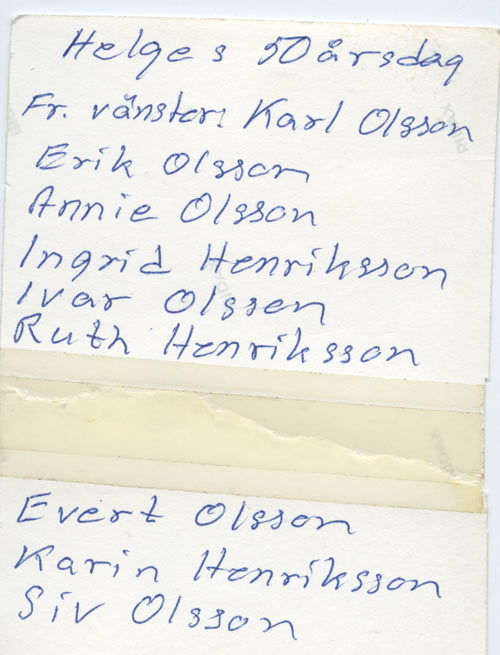 Helges 50 årsdag
Fr. vänster: Karl Olsson
Erik Olsson
Annie Olsson
Ingrid Henriksson
Ivar Olsson
Ruth Henriksson
Evert Olsson
Karin Henriksson
Siv Olsson